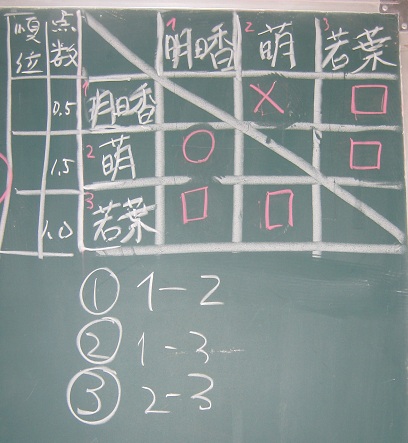 順位 点数 1 明日香 2 萌 3 若葉
0.5 1 明日香 × □
1.5 2 萌 ○ □
1.0 3 若葉 □ □
① 1-2
② 1-3
③ 2-3